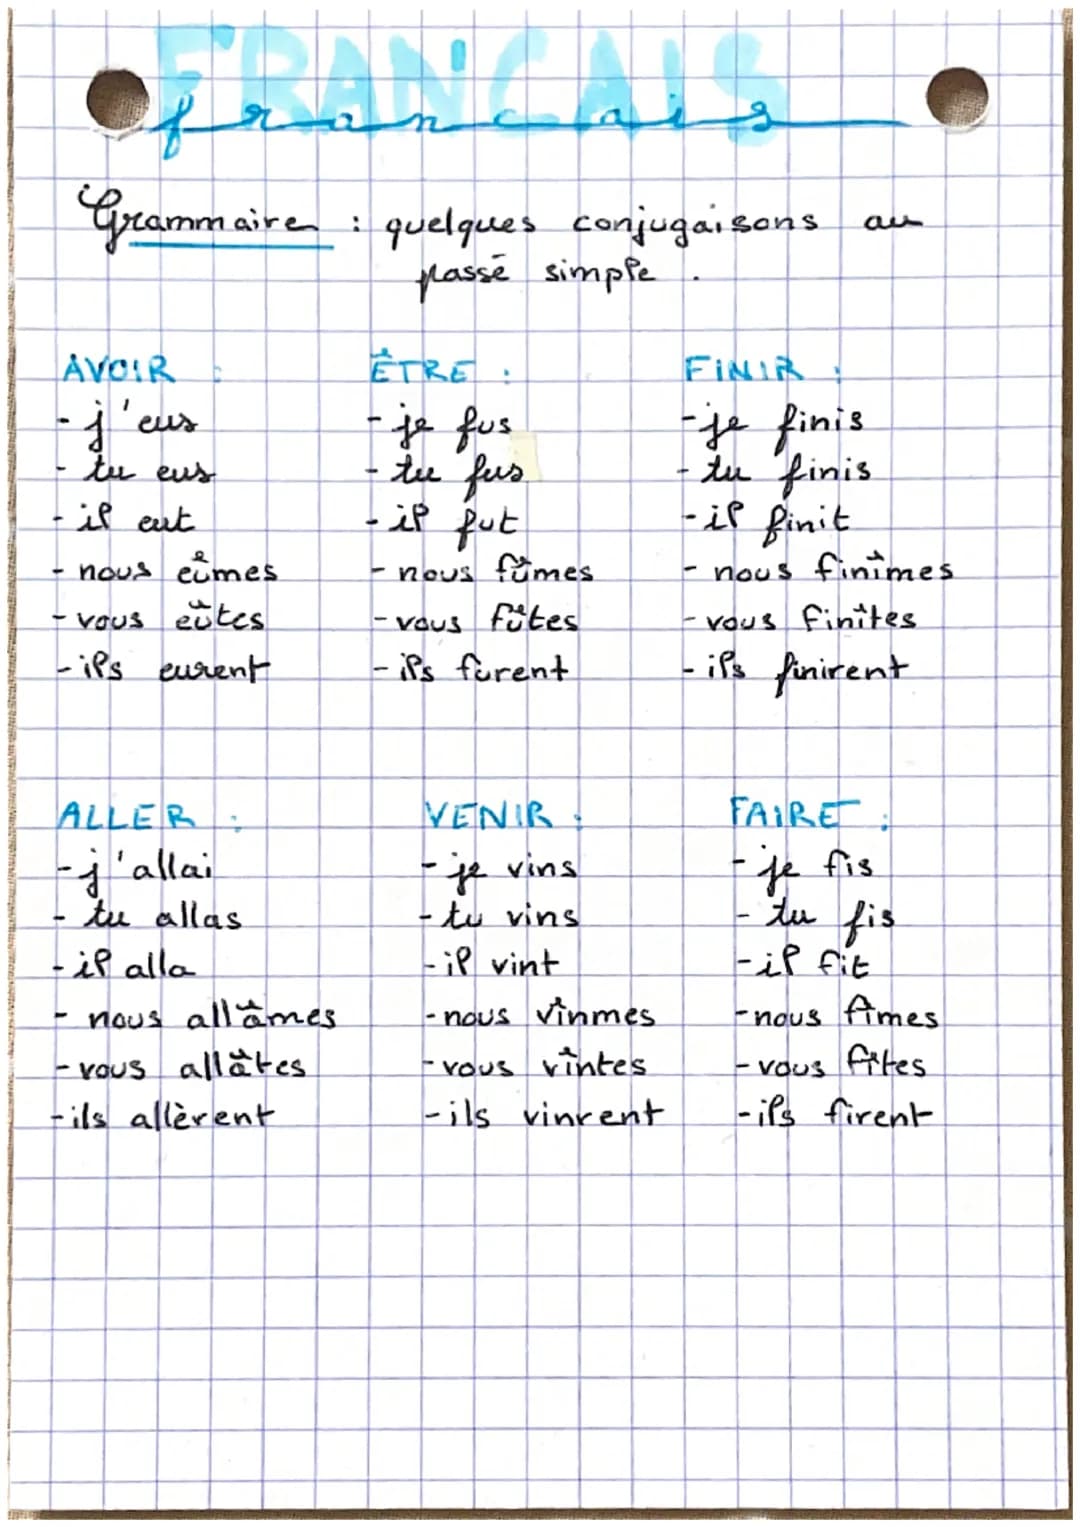 FRANCAIS
francais
Grammaire : quelques conjugaisons au
passé simple.
AVOIR :
- j'eus
- tu eus
- il eut
- nous eûmes
- vous eûtes
- ils eurent
ÊTRE :
- je fus
- tu fus
- il fut
- nous fûmes
- vous fûtes
- ils furent
FINIR :
- je finis
- tu finis
- il finit
- nous finîmes
- vous finîtes
- ils finirent
ALLER :
- j'allai
- tu allas
- il alla
- nous allâmes
- vous allâtes
- ils allèrent
VENIR :
- je vins
- tu vins
- il vint
- nous vînmes
- vous vîntes
- ils vinrent
FAIRE :
- je fis
- tu fis
- il fit
- nous fîmes
- vous fîtes
- ils firent